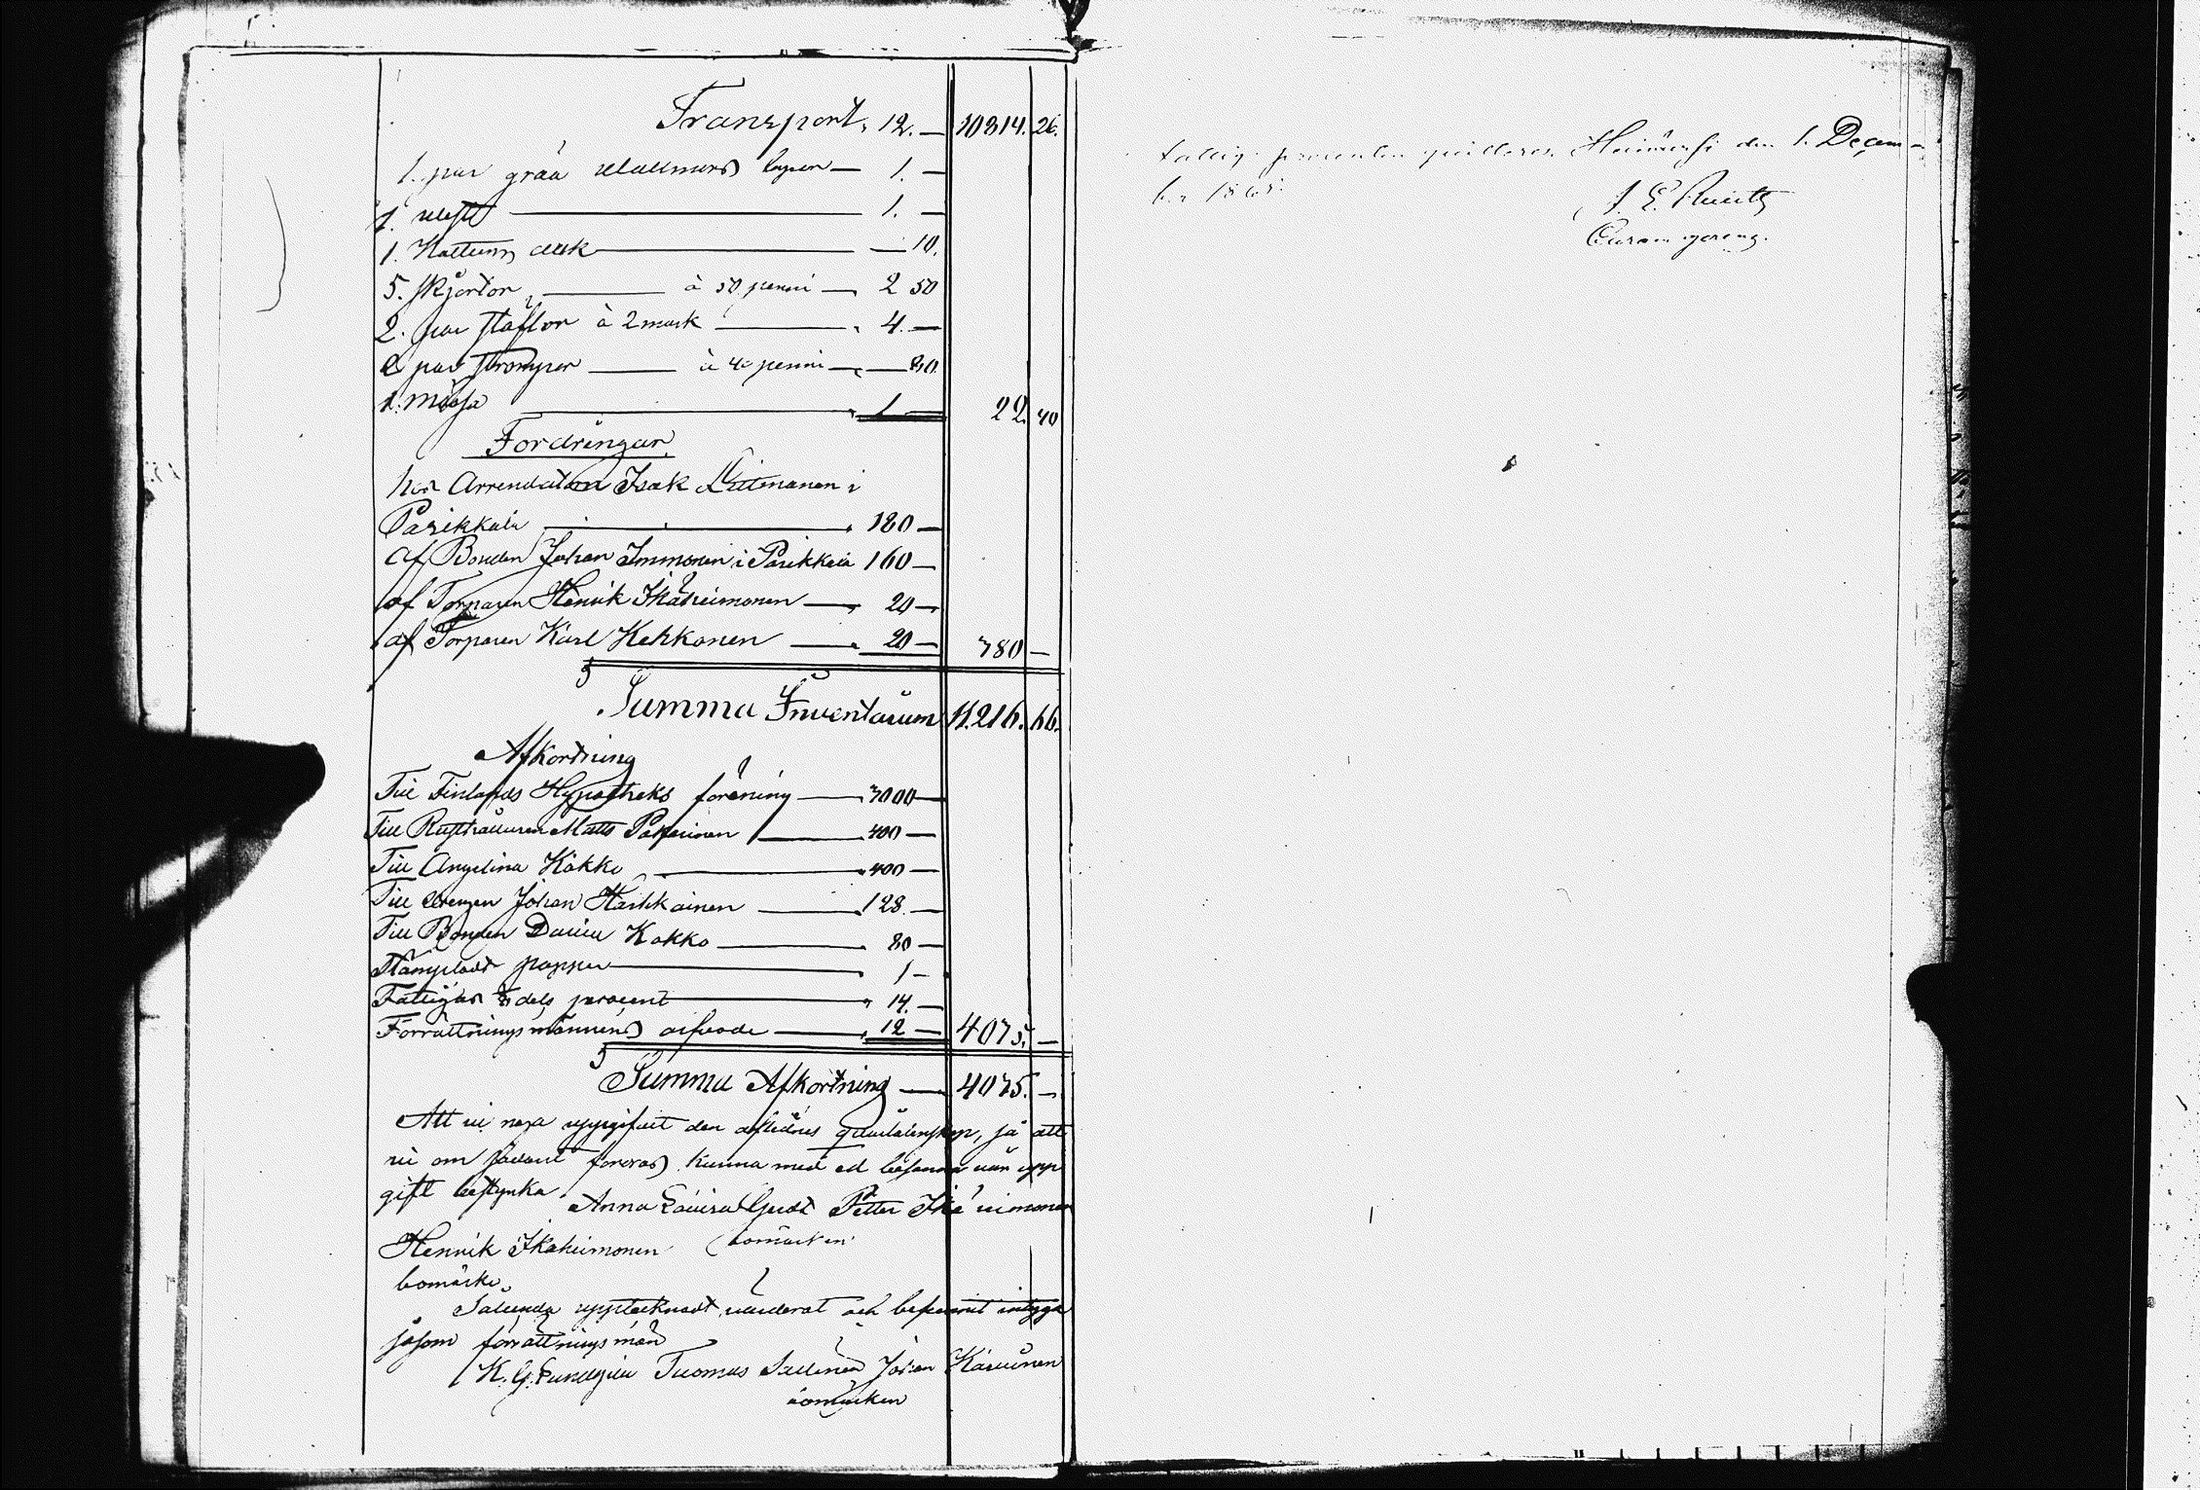 Transport, 12. — 10814. 26.
1. par gråa vallmars byxor — 1. —
1. väst — 1. —
1. Kattuns duk — 10.
5. skjortor, — à 50 penni — 2 50
2. par stöflor à 2 mark — 4. —
2 par strumpor — à 40 penni — 80.
1. Mössa — 1 — 22. 40
Fordringar.
hos Arrendatorn Isak Littmanen i
Parikkala — 180 —
Af Bonden Johan Immonen i Parikkala 160 —
af Torparen Henrik Ikäheimonen — 20 —
af Torparen Karl Kekkonen — 20 — 380 —
Summa Inventarium 11.216. 66.
Afkortning
Till Finlands Hypotheks förening — 3000 —
Till Rusthållaren Matts Pakarinen — 400 —
Till Angelina Kokko — 400 —
Till Drengen Johan Haikkainen — 128. —
Till Bonden Daniel Kokko — 80 —
Stämpladt papper — 1 —
Fattigas dels procent — 14. —
Förrättningsmännens arfvode — 12 — 4075. —
Summa Afkortning — 4075. —
Att vi noga uppgifvit den aflidnes qvarlåtenskap, så att
vi om sådant fordras kunna med ed besanna vår upp
gift bestyrka. Anna Lovisa Gerdt Petter Ikäheimonen
Henrik Ikäheimonen bomärken
bomärke.
Sålunda upptecknadt, värderat och befunnit intyga
såsom förrättningsmän
K. G. Tuomas Sallinen Johan Karvinen
bomärken
fattig procenten qvitteras. den 1. Decem-
ber 1865.